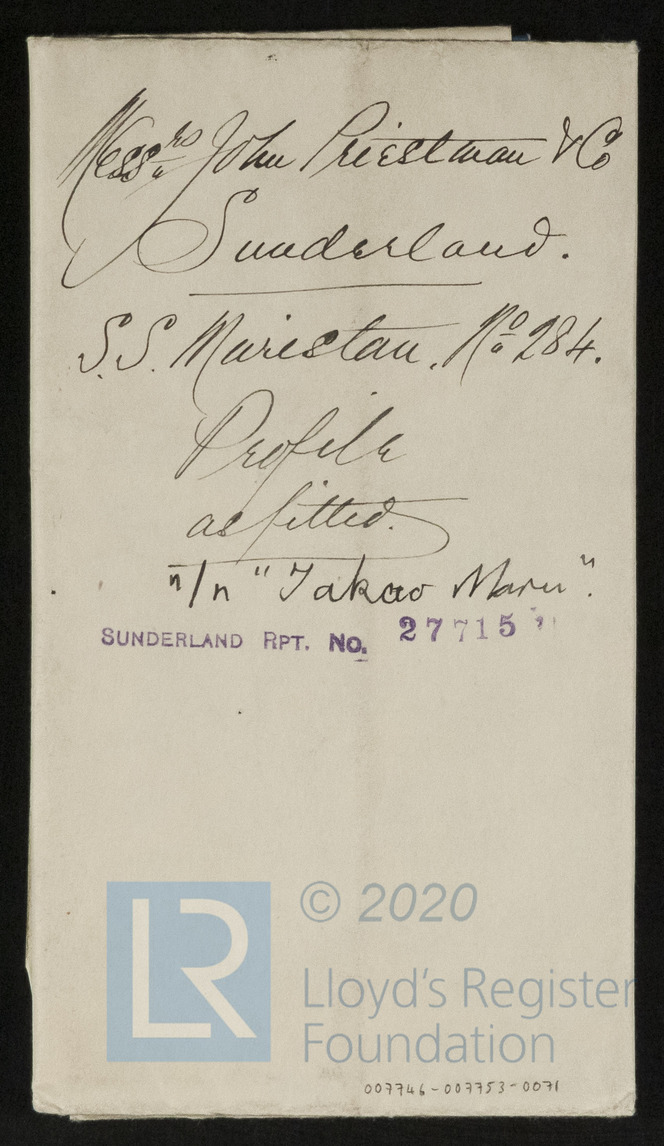 Messrs John Priestman & Co
Sunderland.
S.S. Maristan. No 284.
Profile
as fitted.
n/n "Takao Maru".
SUNDERLAND RPT. No. 27715
LR
© 2020
Lloyd's Register
Foundation
007746-007753-0071